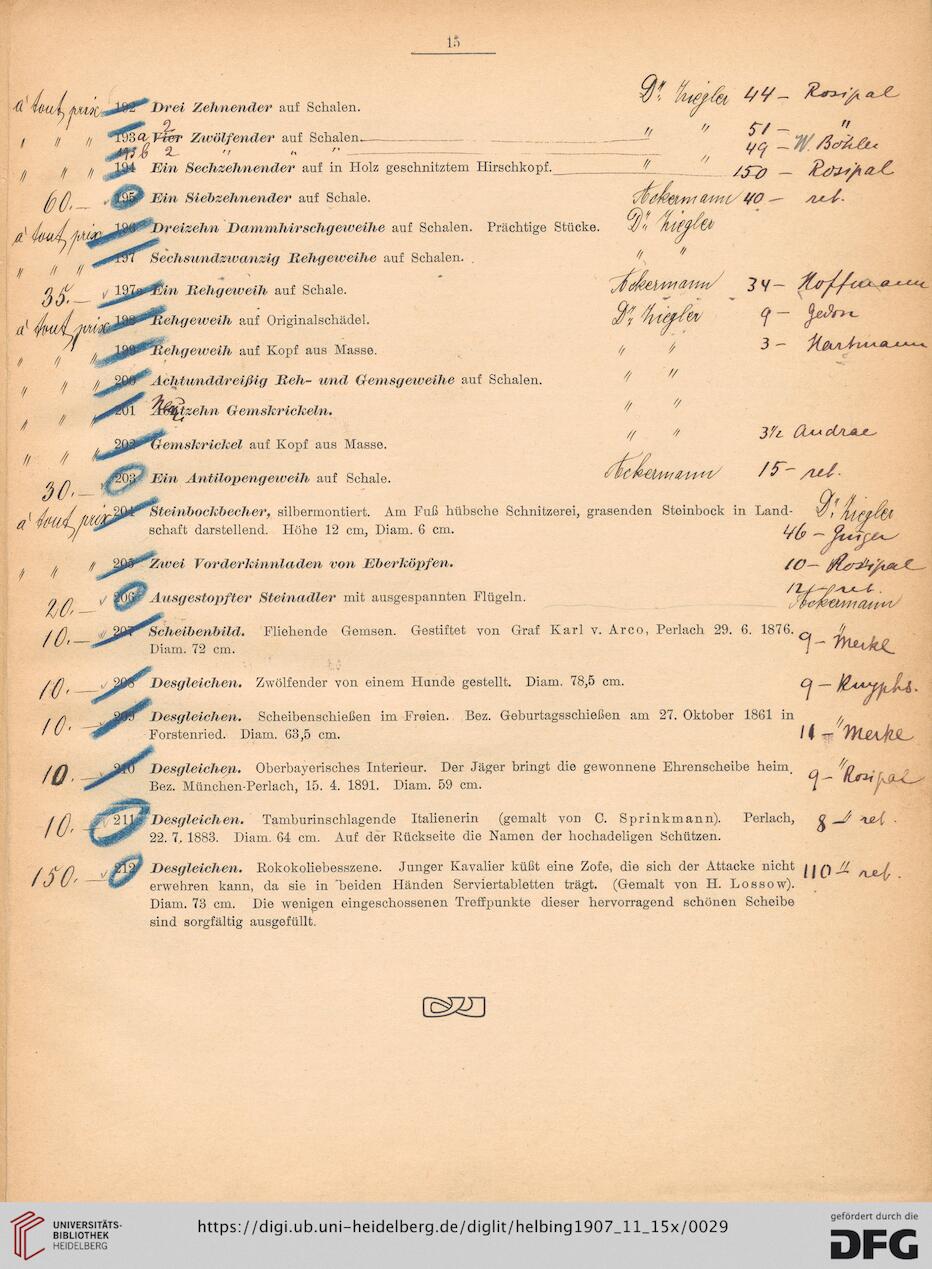 15
a' tout prix 192 Drei Zehnender auf Schalen. Dr. Ziegler 44 — Rosipal
" " " 193a Vier 2 Zwölfender auf Schalen. " " 51 — "
193b 2 " " " 49 — W. Böhler
" " " 194 Ein Sechzehnender auf in Holz geschnitztem Hirschkopf. " " 150 — Rosipal
60.— 195 Ein Siebzehnender auf Schale. Ackermann 40 — ret.
a' tout prix 196 Dreizehn Dammhirschgeweihe auf Schalen. Prächtige Stücke. Dr. Ziegler
" " " 197 Sechsundzwanzig Rehgeweihe auf Schalen. " "
35.— 197a Ein Rehgeweih auf Schale. Ackermann 34 — Hoffmann
a' tout prix 198 Rehgeweih auf Originalschädel. Dr. Ziegler 9 — Gedon
" " " 199 Rehgeweih auf Kopf aus Masse. " " 3 — Hartmann
" " " 200 Achtunddreißig Reh- und Gemsgeweihe auf Schalen. " "
" " " 201 Neunzehn Gemskrickeln. " "
" " " 202 Gemskrickel auf Kopf aus Masse. " " 3½ Andrae
30.— 203 Ein Antilopengeweih auf Schale. Ackermann 15 — ret.
a' tout prix 204 Steinbockbecher, silbermontiert. Am Fuß hübsche Schnitzerei, grasenden Steinbock in Land- Dr. Ziegler
schaft darstellend. Höhe 12 cm, Diam. 6 cm. 46 —
" " " 205 Zwei Vorderkinnladen von Eberköpfen. 10 — Rosipal
20.— 206 Ausgestopfter Steinadler mit ausgespannten Flügeln. 12 — ret.
Ackermann
10.— 207 Scheibenbild. Fliehende Gemsen. Gestiftet von Graf Karl v. Arco, Perlach 29. 6. 1876. "
Diam. 72 cm. 9 — Merkl
10.— 208 Desgleichen. Zwölfender von einem Hunde gestellt. Diam. 78,5 cm. 9 —
10.— 209 Desgleichen. Scheibenschießen im Freien. Bez. Geburtagsschießen am 27. Oktober 1861 in
Forstenried. Diam. 63,5 cm. 11 — " Merkl
10.— 210 Desgleichen. Oberbayerisches Interieur. Der Jäger bringt die gewonnene Ehrenscheibe heim.
Bez. München-Perlach, 15. 4. 1891. Diam. 59 cm. 9 — " Rosipal
10.— 211 Desgleichen. Tamburinschlagende Italienerin (gemalt von C. Sprinkmann). Perlach, 8 — " ret.
22. 7. 1883. Diam. 64 cm. Auf der Rückseite die Namen der hochadeligen Schützen.
150.— 212 Desgleichen. Rokokoliebesszene. Junger Kavalier küßt eine Zofe, die sich der Attacke nicht 110 — " ret.
erwehren kann, da sie in beiden Händen Serviertabletten trägt. (Gemalt von H. Lossow).
Diam. 73 cm. Die wenigen eingeschossenen Treffpunkte dieser hervorragend schönen Scheibe
sind sorgfältig ausgefüllt.
UNIVERSITÄTS-
BIBLIOTHEK
HEIDELBERG
https://digi.ub.uni-heidelberg.de/diglit/helbing1907_11_15x/0029
gefördert durch die
DFG